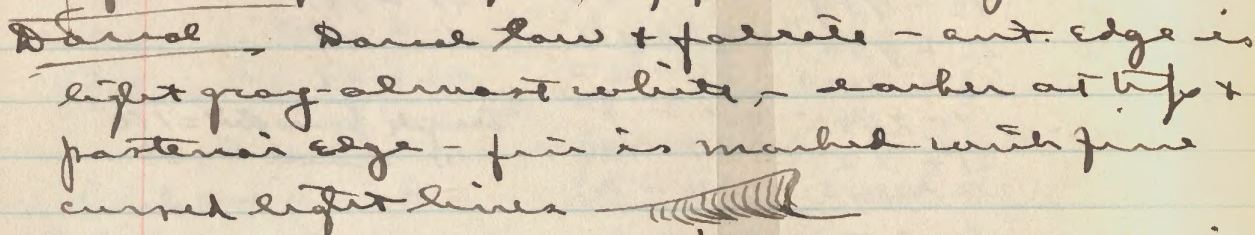 Dorsal. Dorsal low & falcate - ant. edge is
light gray-almost white, - darker at tip &
posterior edge - fin is marked with fine
curved light lines